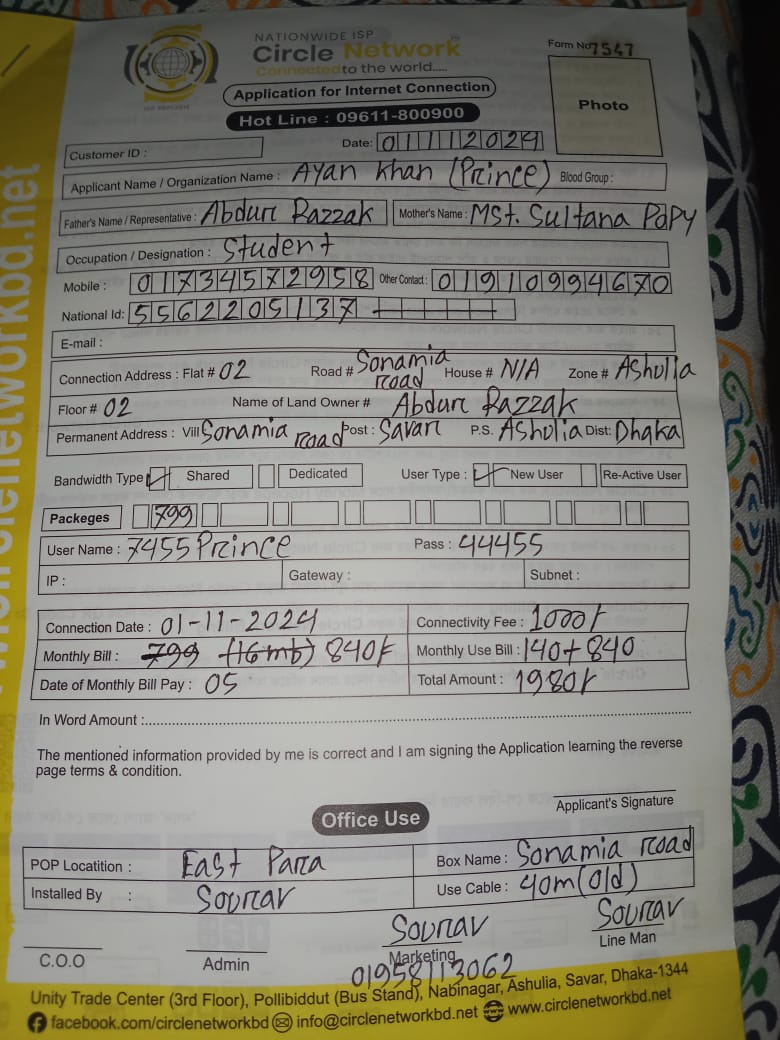 NATIONWIDE ISP
Circle Network
Connected to the world.....
Form No 7547
Application for Internet Connection
Hot Line : 09611-800900
Photo
Customer ID :
Date: 01112024
Applicant Name / Organization Name : Ayan Khan (Prince) Blood Group :
Father's Name / Representative : Abdur Razzak Mother's Name : MSt. Sultana Papy
Occupation / Designation : Student
Mobile : 01734572958 Other Contact : 01910994670
National Id: 5562205137
E-mail :
Connection Address : Flat # 02 Road # Sonamia road House # N/A Zone # Ashulia
Floor # 02 Name of Land Owner # Abdur Razzak
Permanent Address : Vill Sonamia road Post : Savar P.S. Ashulia Dist: Dhaka
Bandwidth Type Shared Dedicated User Type : New User Re-Active User
Packeges 799
User Name : 7455Prince Pass : 44455
IP : Gateway : Subnet :
Connection Date : 01-11-2024 Connectivity Fee : 1000/-
Monthly Bill : 799 (16mb) 840/- Monthly Use Bill : 140+840
Date of Monthly Bill Pay : 05 Total Amount : 1980/-
In Word Amount :
The mentioned information provided by me is correct and I am signing the Application learning the reverse
page terms & condition.
Applicant's Signature
Office Use
POP Locatition : East Para Box Name : Sonamia road
Installed By : Sourav Use Cable : 40m (old)
Sourav Sourav
C.O.O Admin Marketing Line Man
01958113062
Unity Trade Center (3rd Floor), Pollibiddut (Bus Stand), Nabinagar, Ashulia, Savar, Dhaka-1344
facebook.com/circlenetworkbd info@circlenetworkbd.net www.circlenetworkbd.net